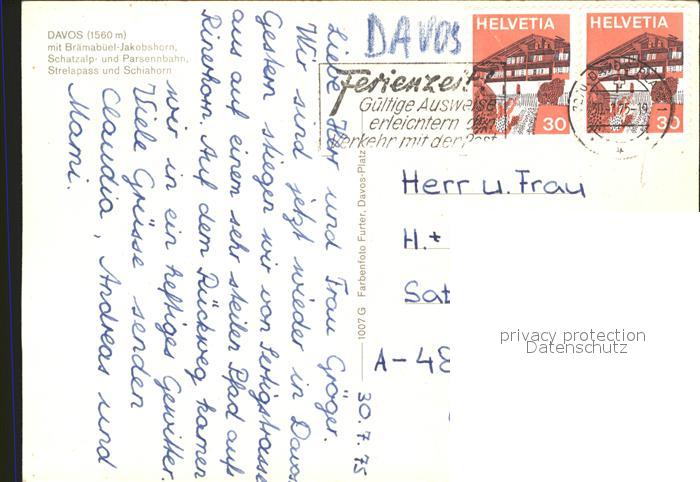 DAVOS (1560 m)
mit Brämabüel-Jakobshorn,
Schatzalp- und Parsennbahn,
Strelapass und Schiahorn
DAVOS
HELVETIA
30
HELVETIA
30
Ferienzeit
Gültige Ausweise
erleichtern den
Verkehr mit der Post
Liebe Herr und Frau Gröger.
Wir sind jetzt wieder in Davos.
Gestern stiegen wir von Sertigstrasse
aus auf einem sehr steilen Pfad aufs
Rinerhorn. Auf dem Rückweg kamen
wir in ein heftiges Gewitter.
Viele Grüsse senden
Claudia, Andreas und
Mami.
1007 G Farbenfoto Furter, Davos-Platz
30.7.75
Herr u. Frau
H. +
Sat
A-48
privacy protection
Datenschutz